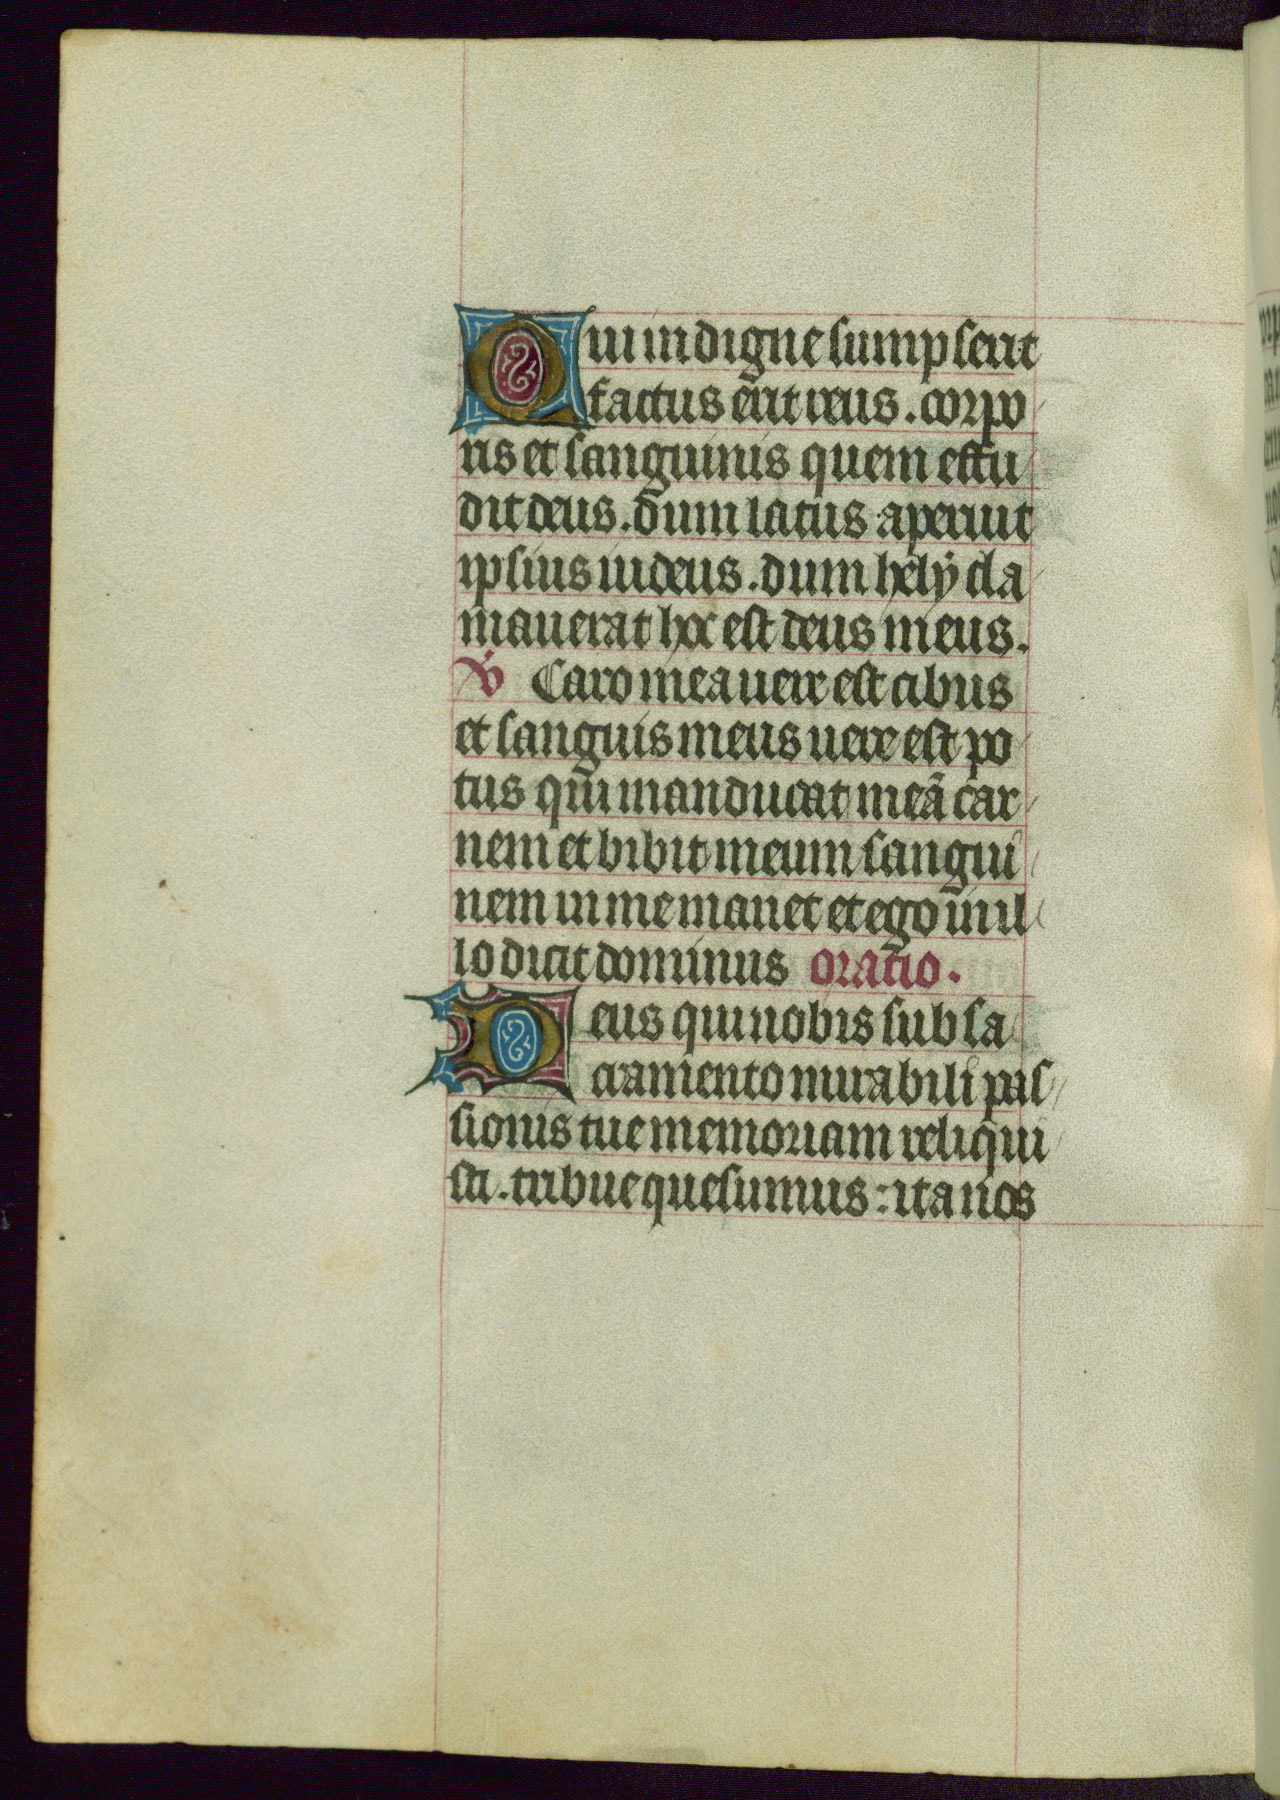 Qui indigne sumpserit
factus erit reus. corpo
ris et sanguinis quem effu
dit deus. dum latus aperuit
ipsius iudeus. dum hely cla
mauerat hoc est deus meus.
V Caro mea uere est cibus
et sanguis meus uere est po
tus qui manducat meā car
nem et bibit meum sangui
nem in me manet et ego in il
lo dicit dominus oratio.
Deus qui nobis sub sa
cramento mirabili pas
sionis tue memoriam reliqui
sti. tribue quesumus: ita nos